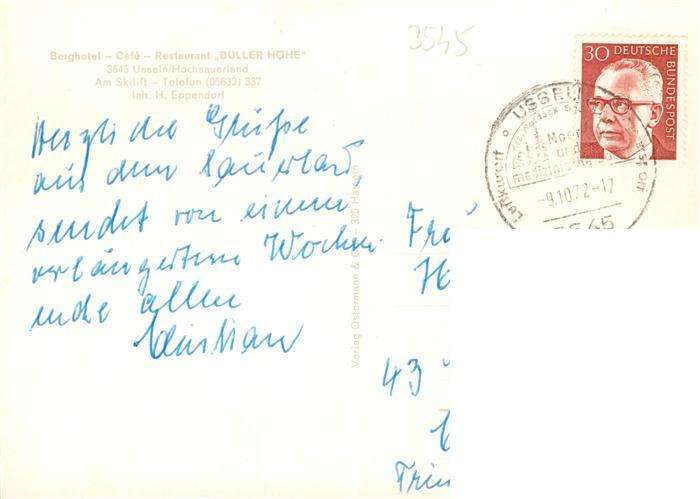 3545
Berghotel – Café – Restaurant „BÜLLER HÖHE"
3545 Usseln/Hochsauerland
Am Skilift – Telefon (05632) 337
Inh. H. Eppendorf
30 DEUTSCHE
BUNDESPOST
USSELN
Moor
und
-9.10.72-17
3545
Luftkurort
Herzliche Grüße
aus dem Sauerland
sendet von einem
verlängerten Wochen
ende allen
Christian
Verlag Ostermann &
43